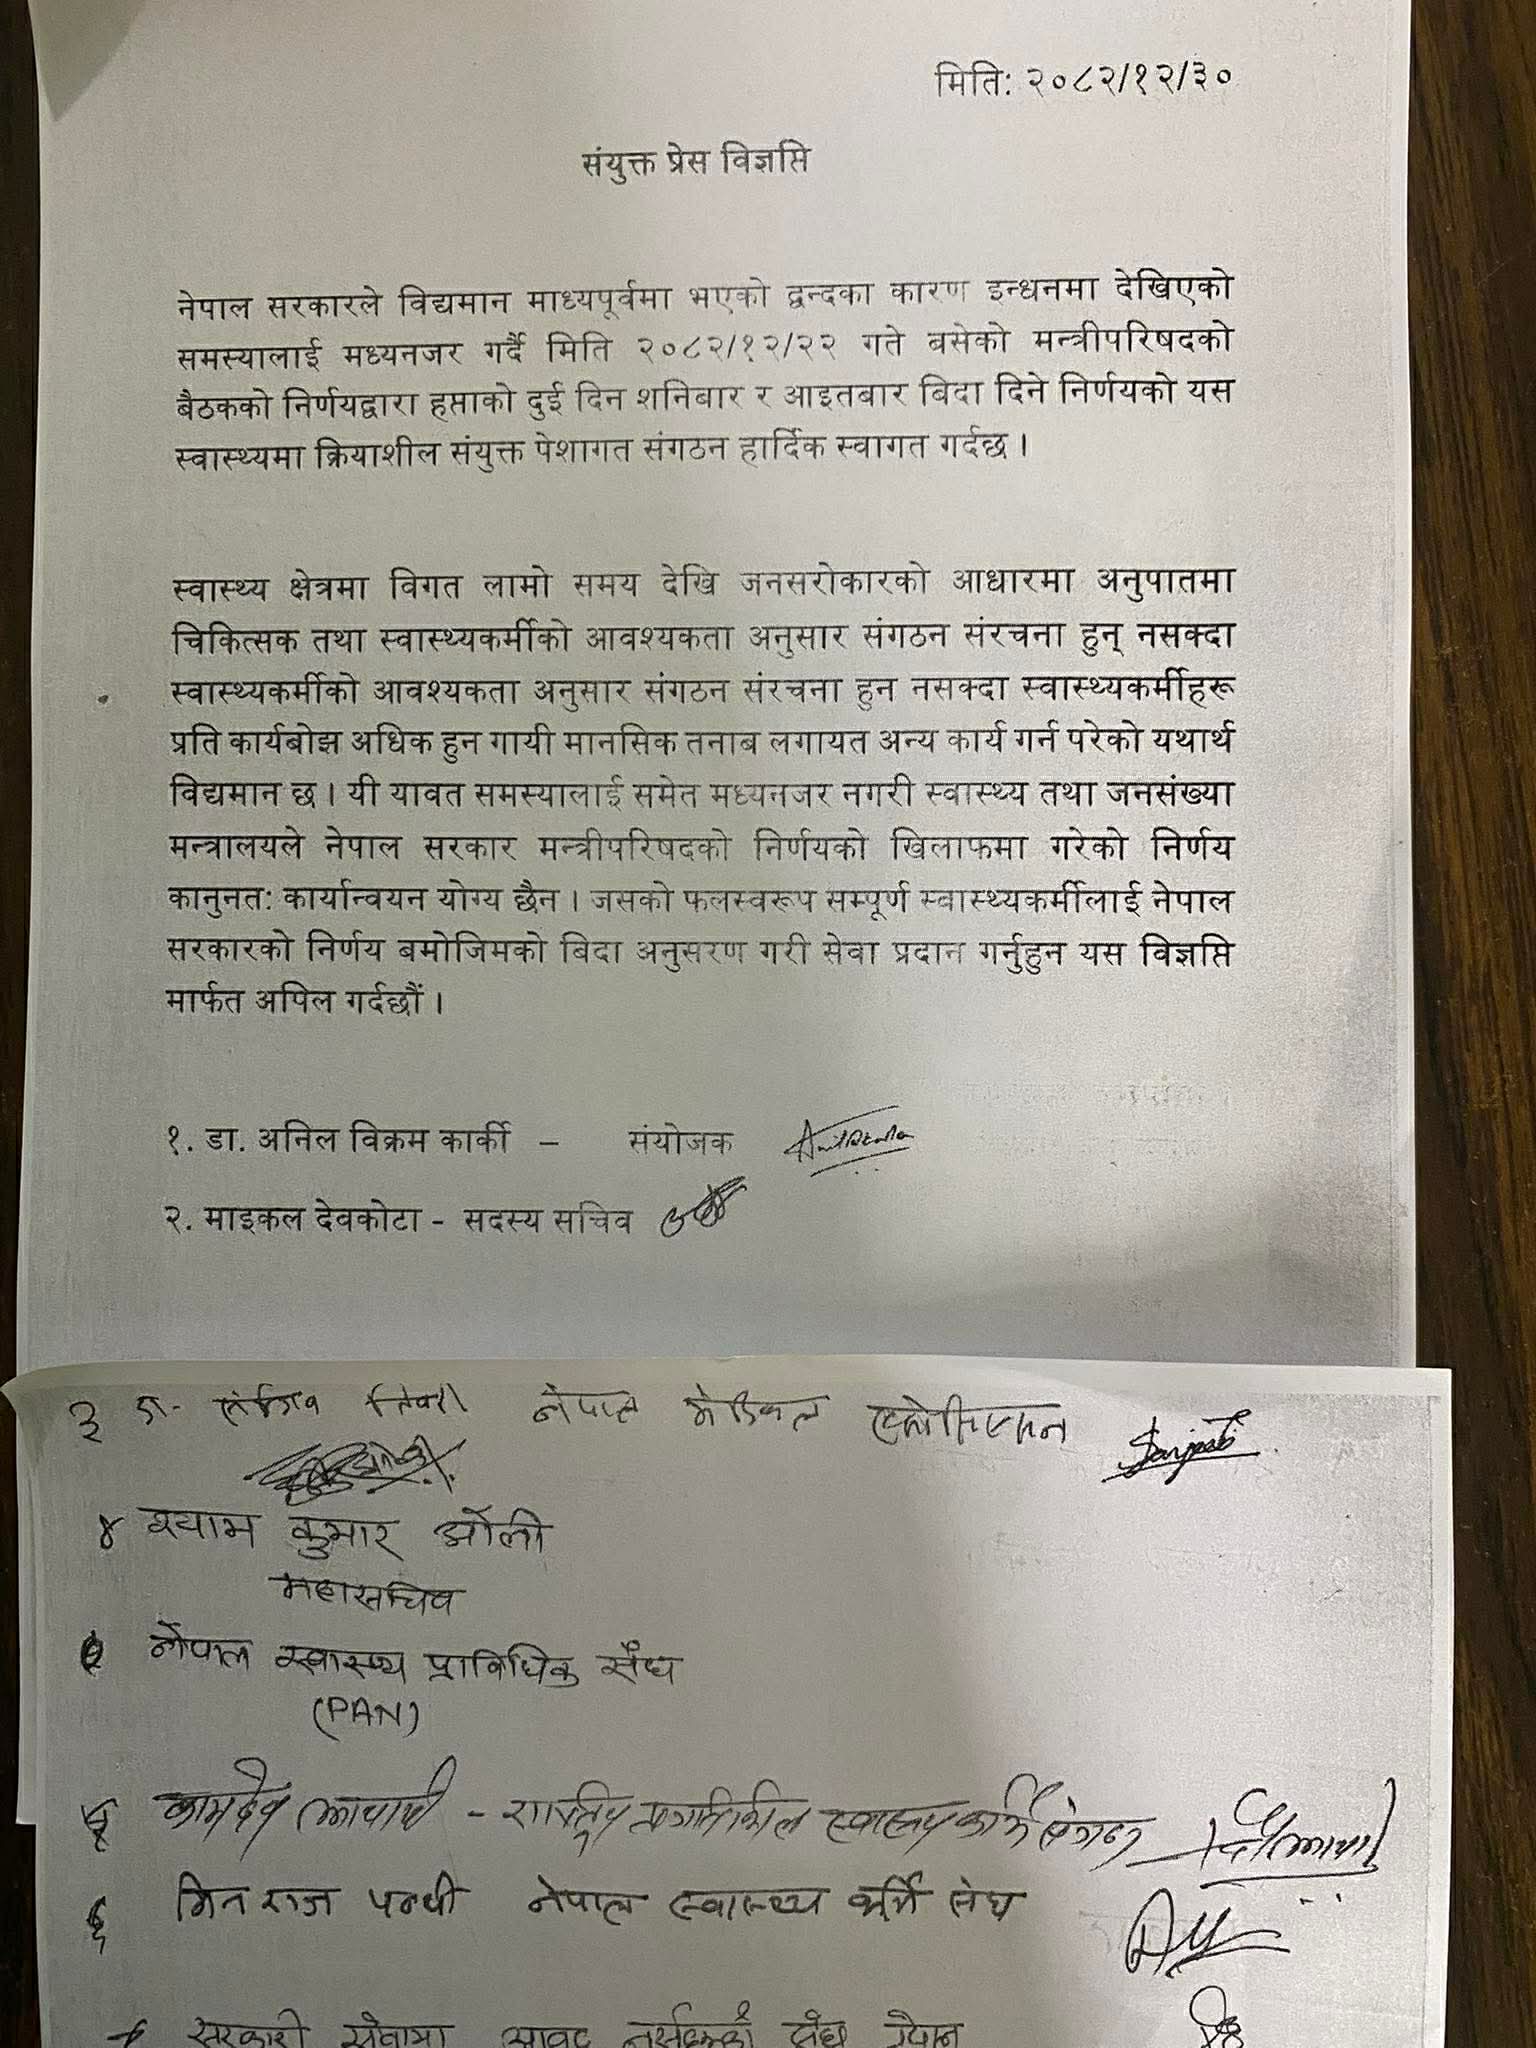 मिति: २०८२/१२/३०
संयुक्त प्रेस विज्ञप्ति
नेपाल सरकारले विद्यमान माध्यपूर्वमा भएको द्वन्दका कारण इन्धनमा देखिएको
समस्यालाई मध्यनजर गर्दै मिति २०८२/१२/२२ गते बसेको मन्त्रीपरिषदको
बैठकको निर्णयद्वारा हप्ताको दुई दिन शनिबार र आइतबार बिदा दिने निर्णयको यस
स्वास्थ्यमा क्रियाशील संयुक्त पेशागत संगठन हार्दिक स्वागत गर्दछ ।
स्वास्थ्य क्षेत्रमा विगत लामो समय देखि जनसरोकारको आधारमा अनुपातमा
चिकित्सक तथा स्वास्थ्यकर्मीको आवश्यकता अनुसार संगठन संरचना हुन् नसक्दा
स्वास्थ्यकर्मीको आवश्यकता अनुसार संगठन संरचना हुन नसक्दा स्वास्थ्यकर्मीहरू
प्रति कार्यबोझ अधिक हुन गायी मानसिक तनाब लगायत अन्य कार्य गर्न परेको यथार्थ
विद्यमान छ । यी यावत समस्यालाई समेत मध्यनजर नगरी स्वास्थ्य तथा जनसंख्या
मन्त्रालयले नेपाल सरकार मन्त्रीपरिषदको निर्णयको खिलाफमा गरेको निर्णय
कानुनत: कार्यान्वयन योग्य छैन । जसको फलस्वरूप सम्पूर्ण स्वास्थ्यकर्मीलाई नेपाल
सरकारको निर्णय बमोजिमको बिदा अनुसरण गरी सेवा प्रदान गर्नुहुन यस विज्ञप्ति
मार्फत अपिल गर्दछौं ।
१. डा. अनिल विक्रम कार्की – संयोजक
२. माइकल देवकोटा - सदस्य सचिव
३ डा. तिवारी नेपाल मेडिकल एसोसिएसन
४ श्याम कुमार ओली
महासचिव
नेपाल स्वास्थ्य प्राविधिक संघ
(PAN)
कामदेव - राष्ट्रिय प्रगतिशिल स्वास्थ्यकर्मि संगठन
६ मिन राज पन्थी नेपाल स्वास्थ्य कर्मि संघ
सरकारी सेवामा आवद्ध नर्सहरुको संघ नेपाल